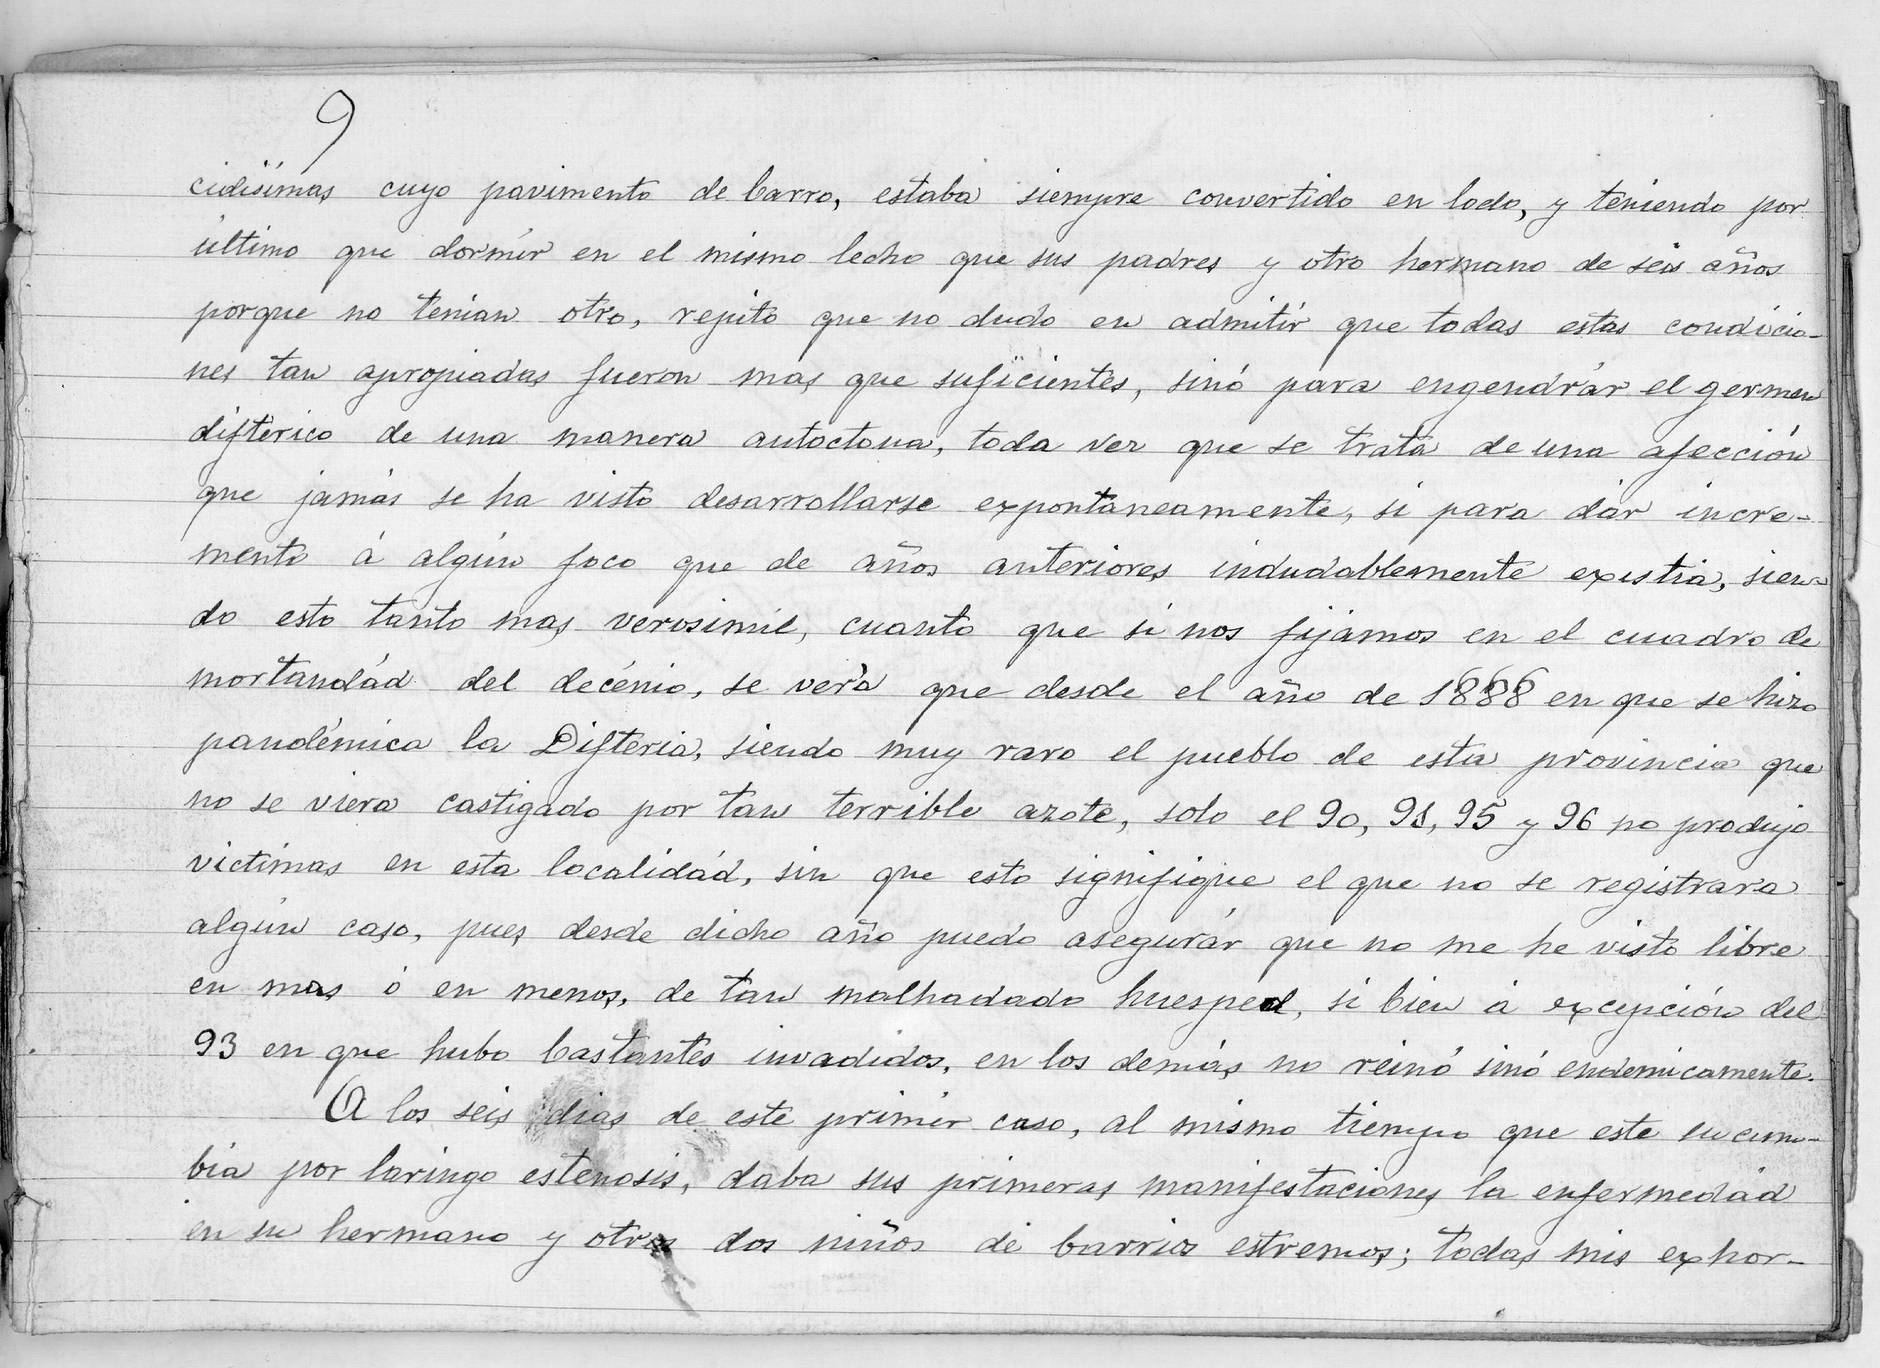 9
cidisimas cuyo pavimento de barro, estaba siempre convertido en lodo, y teniendo por
último que dormir en el mismo lecho que sus padres y otro hermano de seis años
porque no tenian otro, repito que no dudo en admitir que todas estas condicio-
nes tan apropiadas fueron mas que suficientes, sinó para engendrár el germen
diftérico de una manera autoctona, toda vez que se trata de una afección
que jamás se ha visto desarrollarse expontaneamente, si para dár incre-
mento á algún foco que de años anteriores indudablemente existia, sien-
do esto tanto mas verosimil, cuanto que si nos fijámos en el cuadro de
mortandád del decénio, se verá que desde el año de 1888 en que se hizo
pandémica la Difteria, siendo muy raro el pueblo de esta provincia que
no se viera castigado por tan terrible azote, solo el 90, 91, 95 y 96 no produjo
victimas en esta localidád, sin que esto signifique el que no se registrara
algún caso, pues desde dicho año puedo asegurár que no me he visto libre
en mas ó en menos, de tan malhadado huesped, si bien á excepción del
93 en que hubo bastantes invadidos, en los demás no reinó sinó endemicamente.
A los seis dias de este primer caso, al mismo tiempo que este sucum-
bia por laringo estenosis, daba sus primeras manifestaciones la enfermedád
en su hermano y otros dos niños de barrios estremos; todas mis exhor-